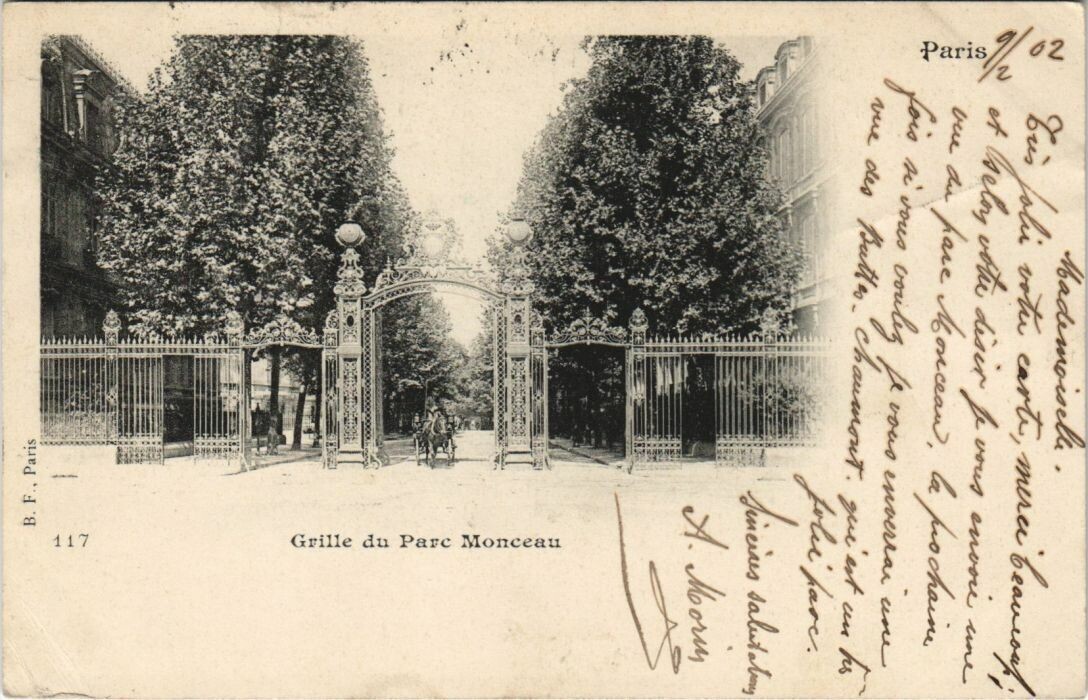 Paris 9/2 02
Mademoiselle.
Très jolie votre carte, merci beaucoup,
et selon votre désir je vous envoie une
vue du parc Monceau, la prochaine
fois si vous voulez je vous enverrai une
vue des Buttes-Chaumont. qui est un très
joli parc.
Sincères salutations
A. Morin
B. F., Paris
117
Grille du Parc Monceau